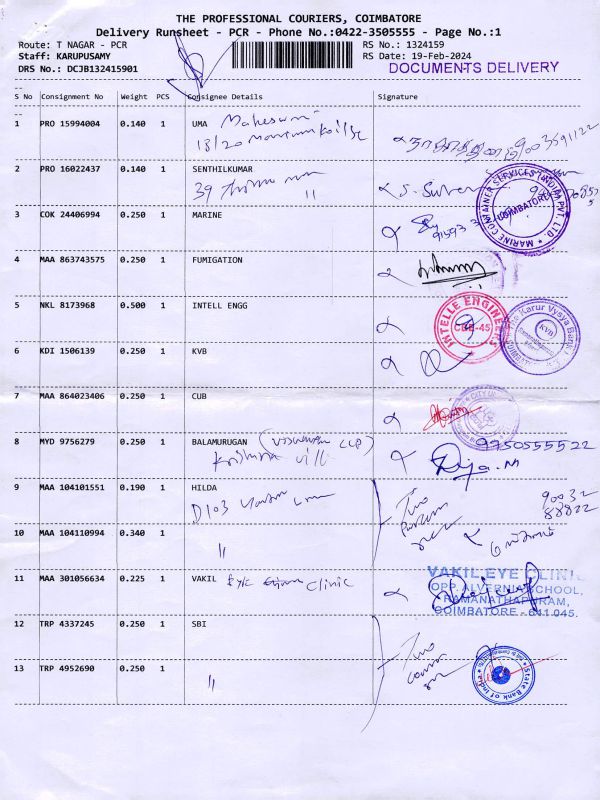 THE PROFESSIONAL COURIERS, COIMBATORE
Delivery Runsheet - PCR - Phone No.:0422-3505555 - Page No.:1
Route: T NAGAR - PCR RS No.: 1324159
Staff: KARUPUSAMY RS Date: 19-Feb-2024
DRS No.: DCJB132415901 DOCUMENTS DELIVERY
S No Consignment No Weight PCS Consignee Details Signature
1 PRO 15994004 0.140 1 UMA Maheswari
18/20
9003591122
2 PRO 16022437 0.140 1 SENTHILKUMAR
39
3 COK 24406994 0.250 1 MARINE
MARINE CONTAINER SERVICES (INDIA) PVT. LTD
COIMBATORE
4 MAA 863743575 0.250 1 FUMIGATION
5 NKL 8173968 0.500 1 INTELL ENGG
INTELLE ENGINEERS
CBE-45
The Karur Vysya Bank
KVB
6 KDI 1506139 0.250 1 KVB
7 MAA 864023406 0.250 1 CUB
CITY
8 MYD 9756279 0.250 1 BALAMURUGAN
Krishna Vill
9750555522
9 MAA 104101551 0.190 1 HILDA
D103
Two
90032
88822
10 MAA 104110994 0.340 1
"
11 MAA 301056634 0.225 1 VAKIL Eye Clinic
VAKIL EYE CLINIC
OPP. ALVERNIA SCHOOL,
RAMANATHAPURAM,
COIMBATORE - 641 045.
12 TRP 4337245 0.250 1 SBI
Two
13 TRP 4952690 0.250 1
"
State Bank of India